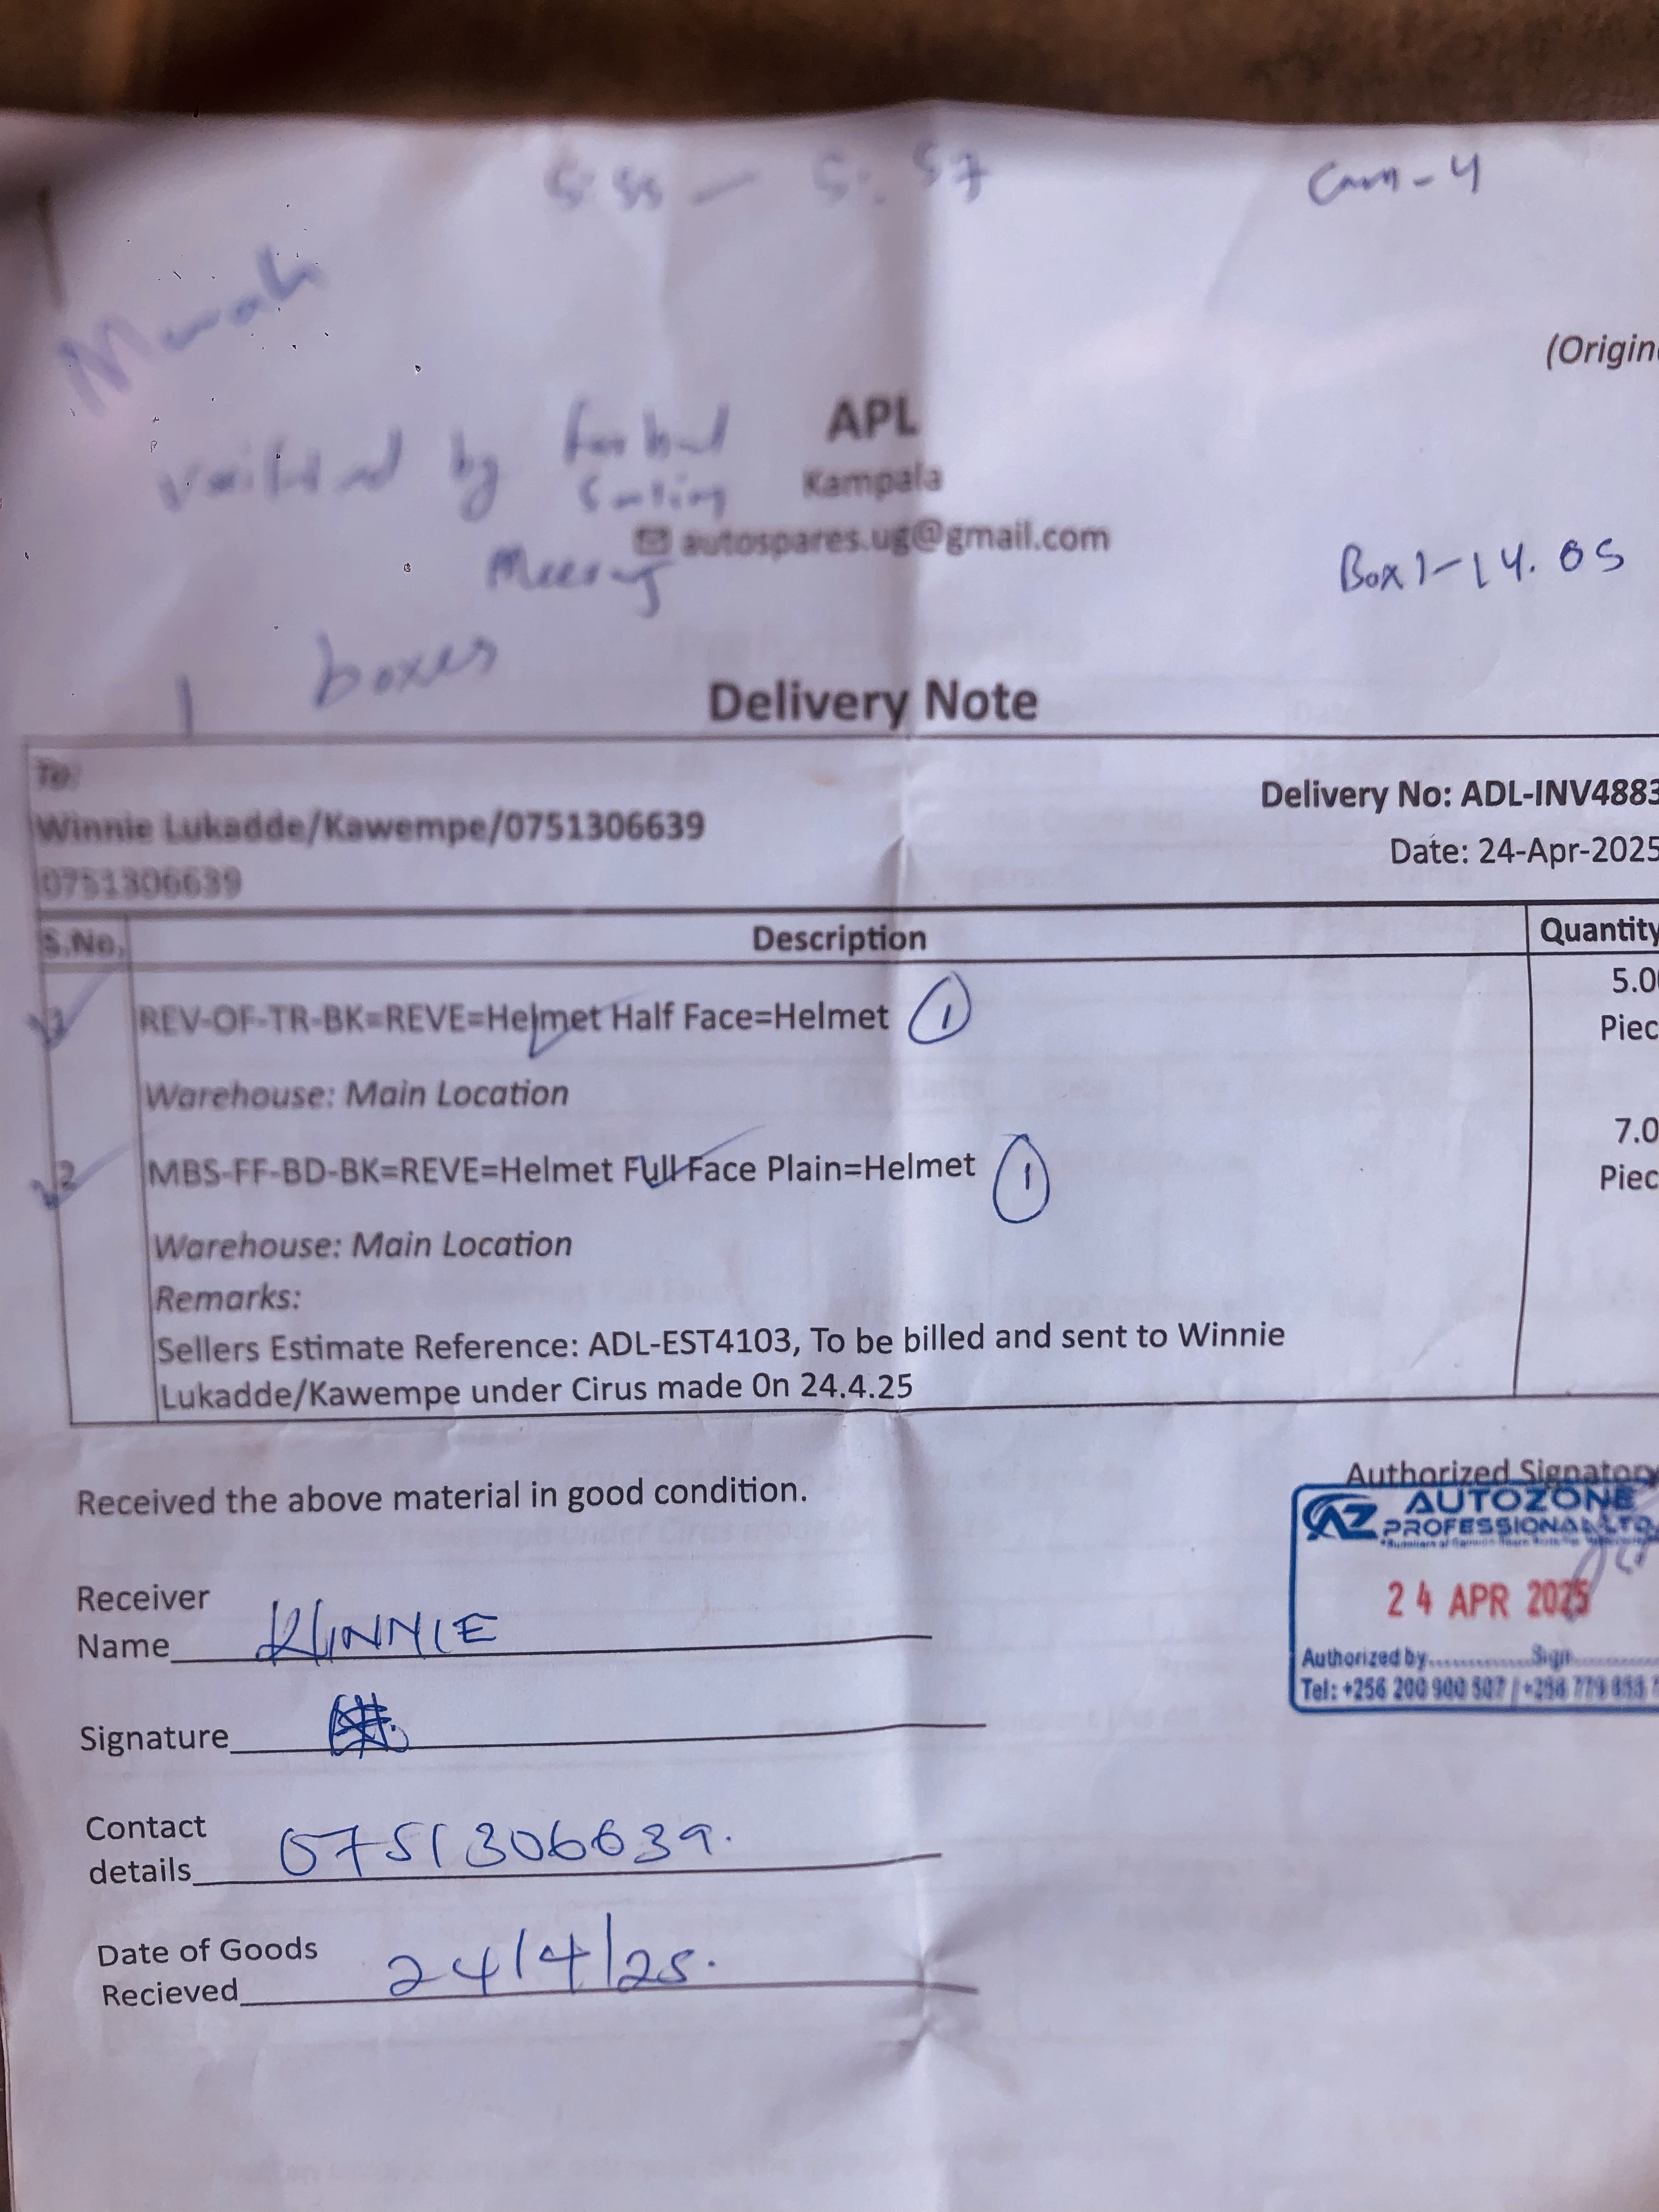 5:55 - 5:57
Cam-4
(Origin
APL
by
Kampala
autospares.ug@gmail.com
Box 1-14.05
1 boxes
Delivery Note
To:
Winnie Lukadde/Kawempe/0751306639
0751306639
Delivery No: ADL-INV4883
Date: 24-Apr-2025
S.No. Description Quantity
1 REV-OF-TR-BK=REVE=Helmet Half Face=Helmet 1 5.0
Piec
Warehouse: Main Location
2 MBS-FF-BD-BK=REVE=Helmet Full Face Plain=Helmet 1 7.0
Piec
Warehouse: Main Location
Remarks:
Sellers Estimate Reference: ADL-EST4103, To be billed and sent to Winnie
Lukadde/Kawempe under Cirus made 0n 24.4.25
Received the above material in good condition.
Authorized Signatory
AZ AUTOZONE
PROFESSIONAL LTD
24 APR 2025
Authorized by.............Sign............
Tel: +256 200 900 507 / +256 779
Receiver
Name WINNIE
Signature
Contact
details 0751306639.
Date of Goods
Recieved 24/4/25.